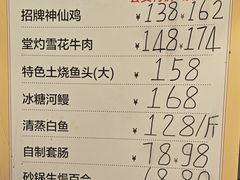 招牌神仙鸡 ¥138.162
堂灼雪花牛肉 ¥148.174
特色土烧鱼头(大) ¥158
冰糖河鳗 ¥168
清蒸白鱼 ¥128/斤
自制套肠 ¥78.98
砂锅生焗百合 ¥68.80